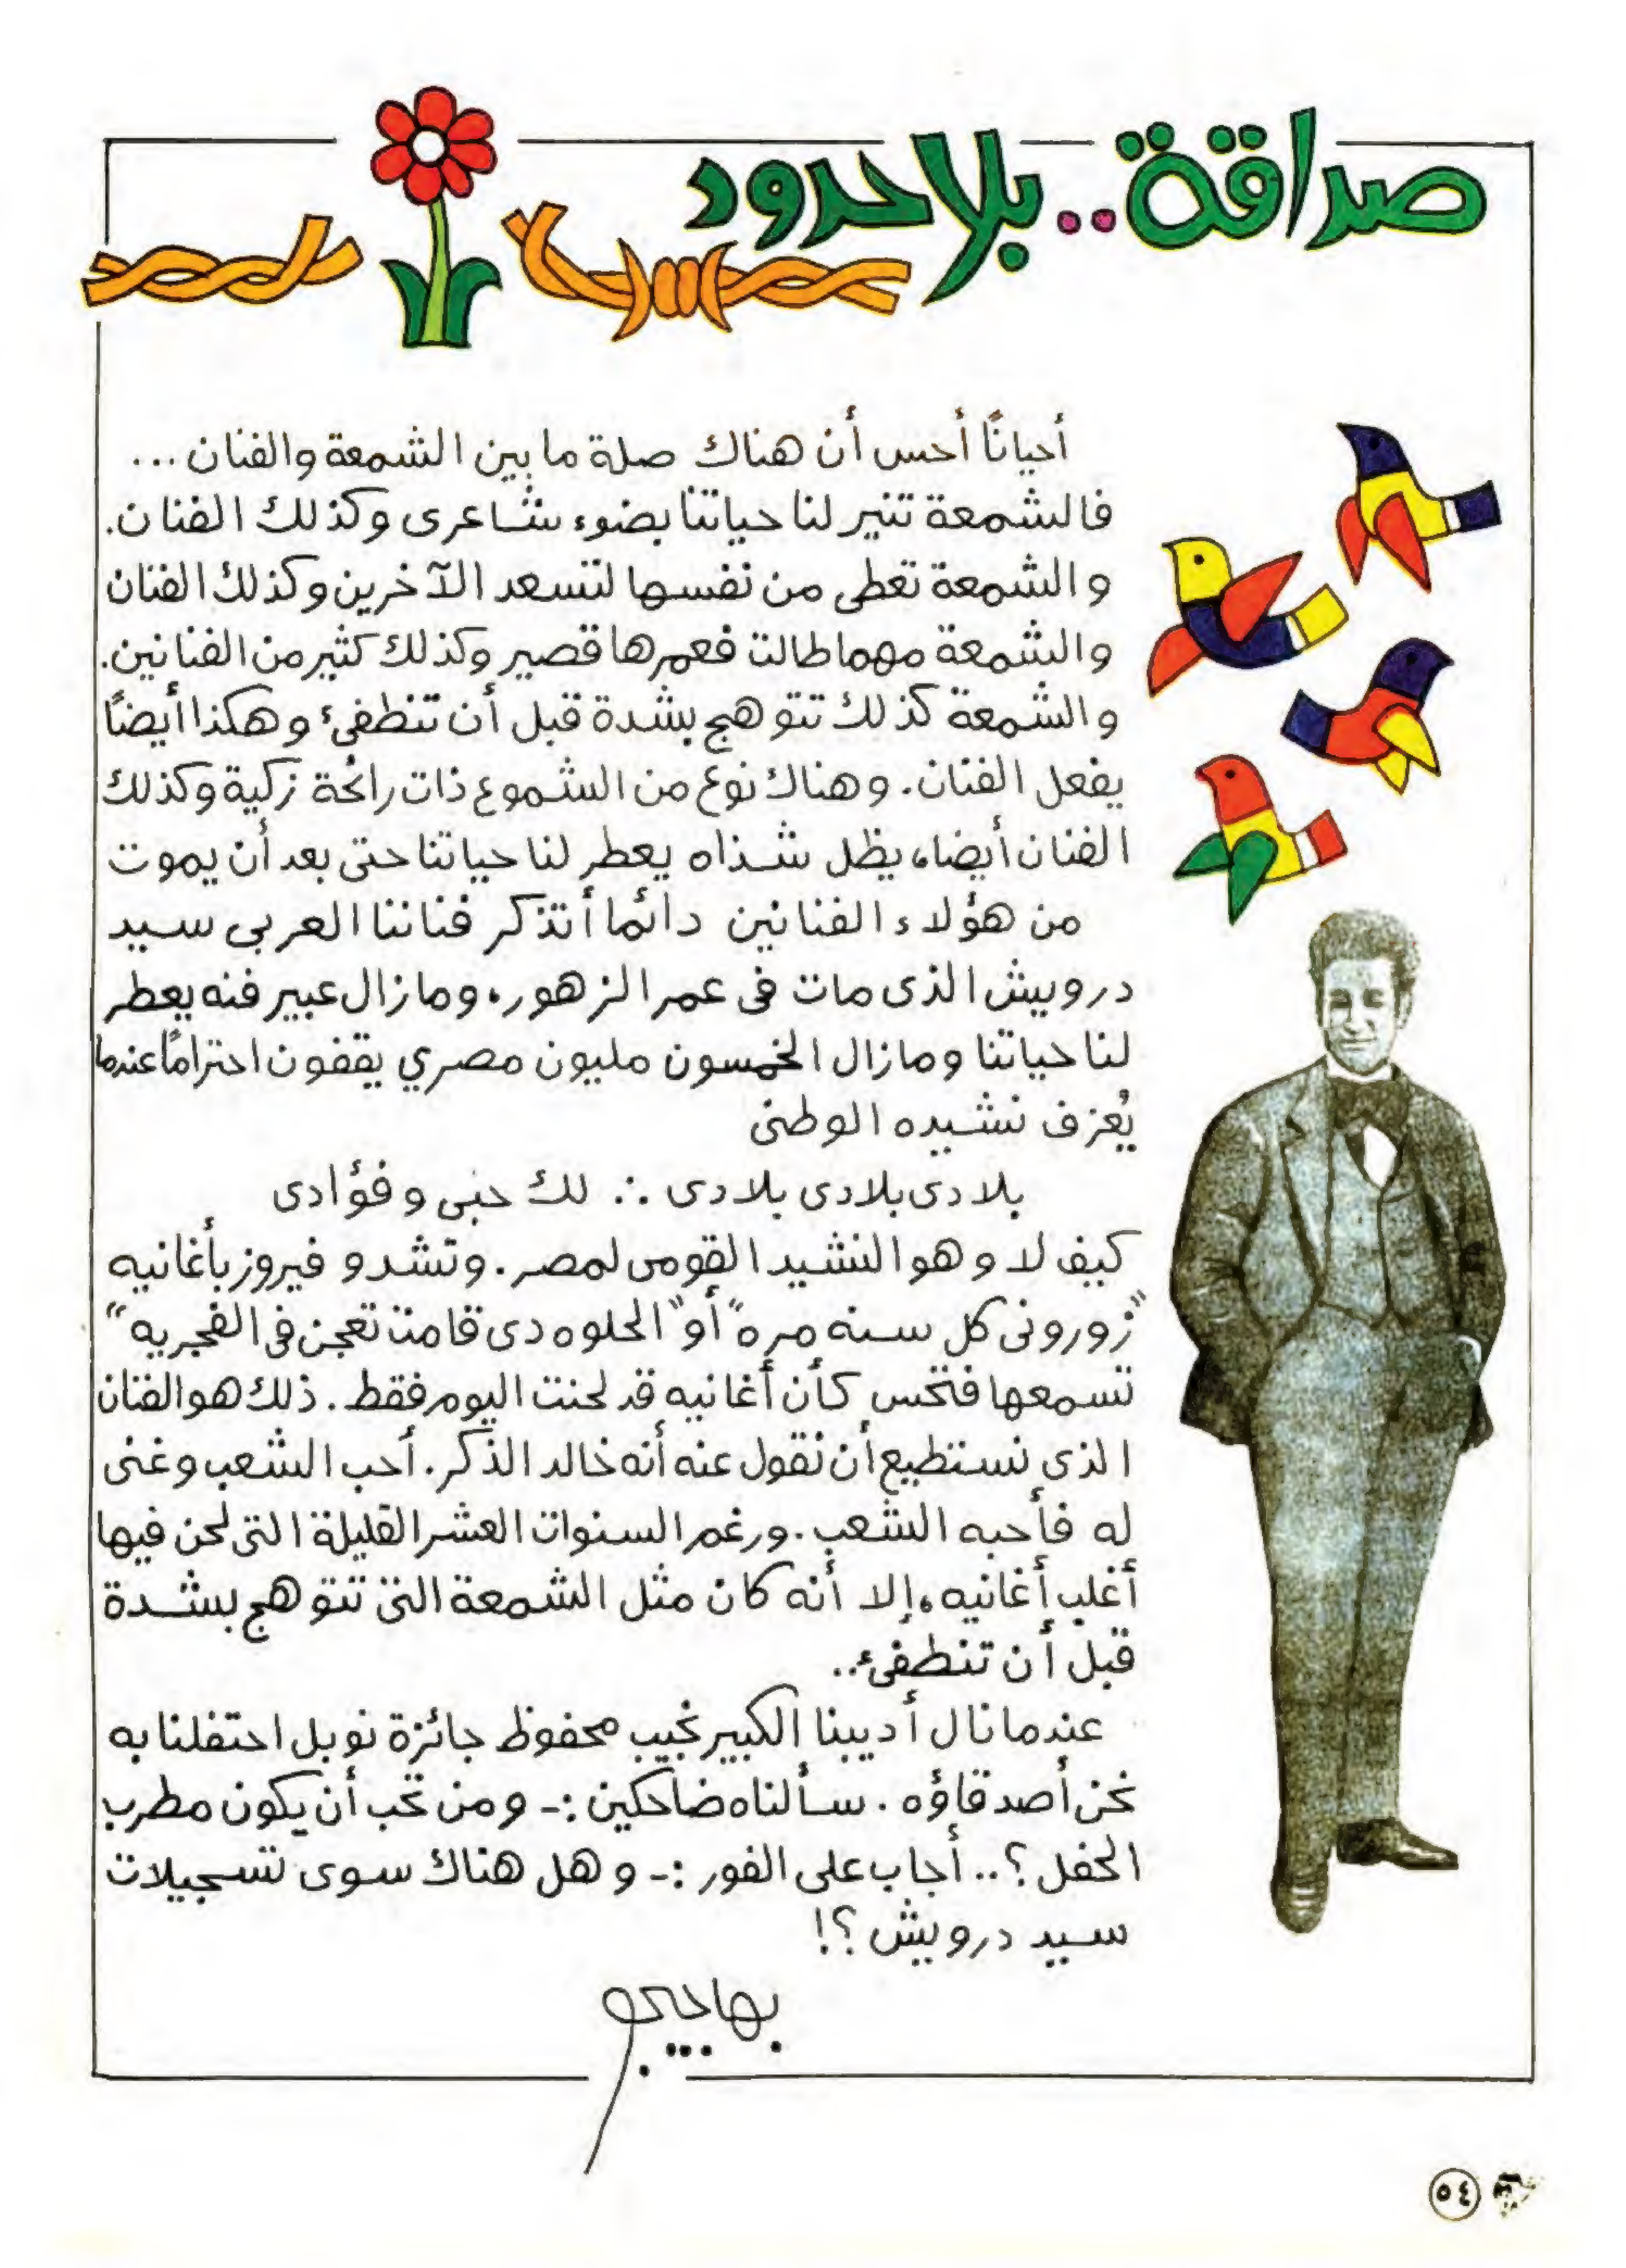 صداقة .. بلا حدود
أحيانًا أحس أن هناك صلة ما بين الشمعة والفنان ...
فالشمعة تنير لنا حياتنا بضوء شاعرى وكذلك الفنان.
والشمعة تعطى من نفسها لتسعد الآخرين وكذلك الفنان
والشمعة مهما طالت فعمرها قصير وكذلك كثير من الفنانين.
والشمعة كذلك تتوهج بشدة قبل أن تنطفئ وهكذا أيضًا
يفعل الفنان. وهناك نوع من الشموع ذات رائحة زكية وكذلك
الفنان أيضا، يظل شذاه يعطر لنا حياتنا حتى بعد أن يموت
من هؤلاء الفنانين دائما أتذكر فناننا العربى سيد
درويش الذى مات فى عمر الزهور، وما زال عبير فنه يعطر
لنا حياتنا وما زال الخمسون مليون مصري يقفون احترامًا عندما
يُعزف نشيده الوطنى
بلادى بلادى بلادى ∴ لك حبى وفؤادى
كيف لا وهو النشيد القومى لمصر. وتشدو فيروز بأغانيه
"زورونى كل سنه مره" أو "الحلوه دى قامت تعجن فى الفجريه"
تسمعها فتحس كأن أغانيه قد لحنت اليوم فقط. ذلك هو الفنان
الذى نستطيع أن نقول عنه أنه خالد الذكر. أحب الشعب وغنى
له فأحبه الشعب. ورغم السنوات العشر القليلة التى لحن فيها
أغلب أغانيه، إلا أنه كان مثل الشمعة التى تتوهج بشدة
قبل أن تنطفئ..
عندما نال أديبنا الكبير نجيب محفوظ جائزة نوبل احتفلنا به
نحن أصدقاؤه. سألناه ضاحكين :- ومن تحب أن يكون مطرب
الحفل ؟.. أجاب على الفور :- وهل هناك سوى تسجيلات
سيد درويش ؟!
٥٤